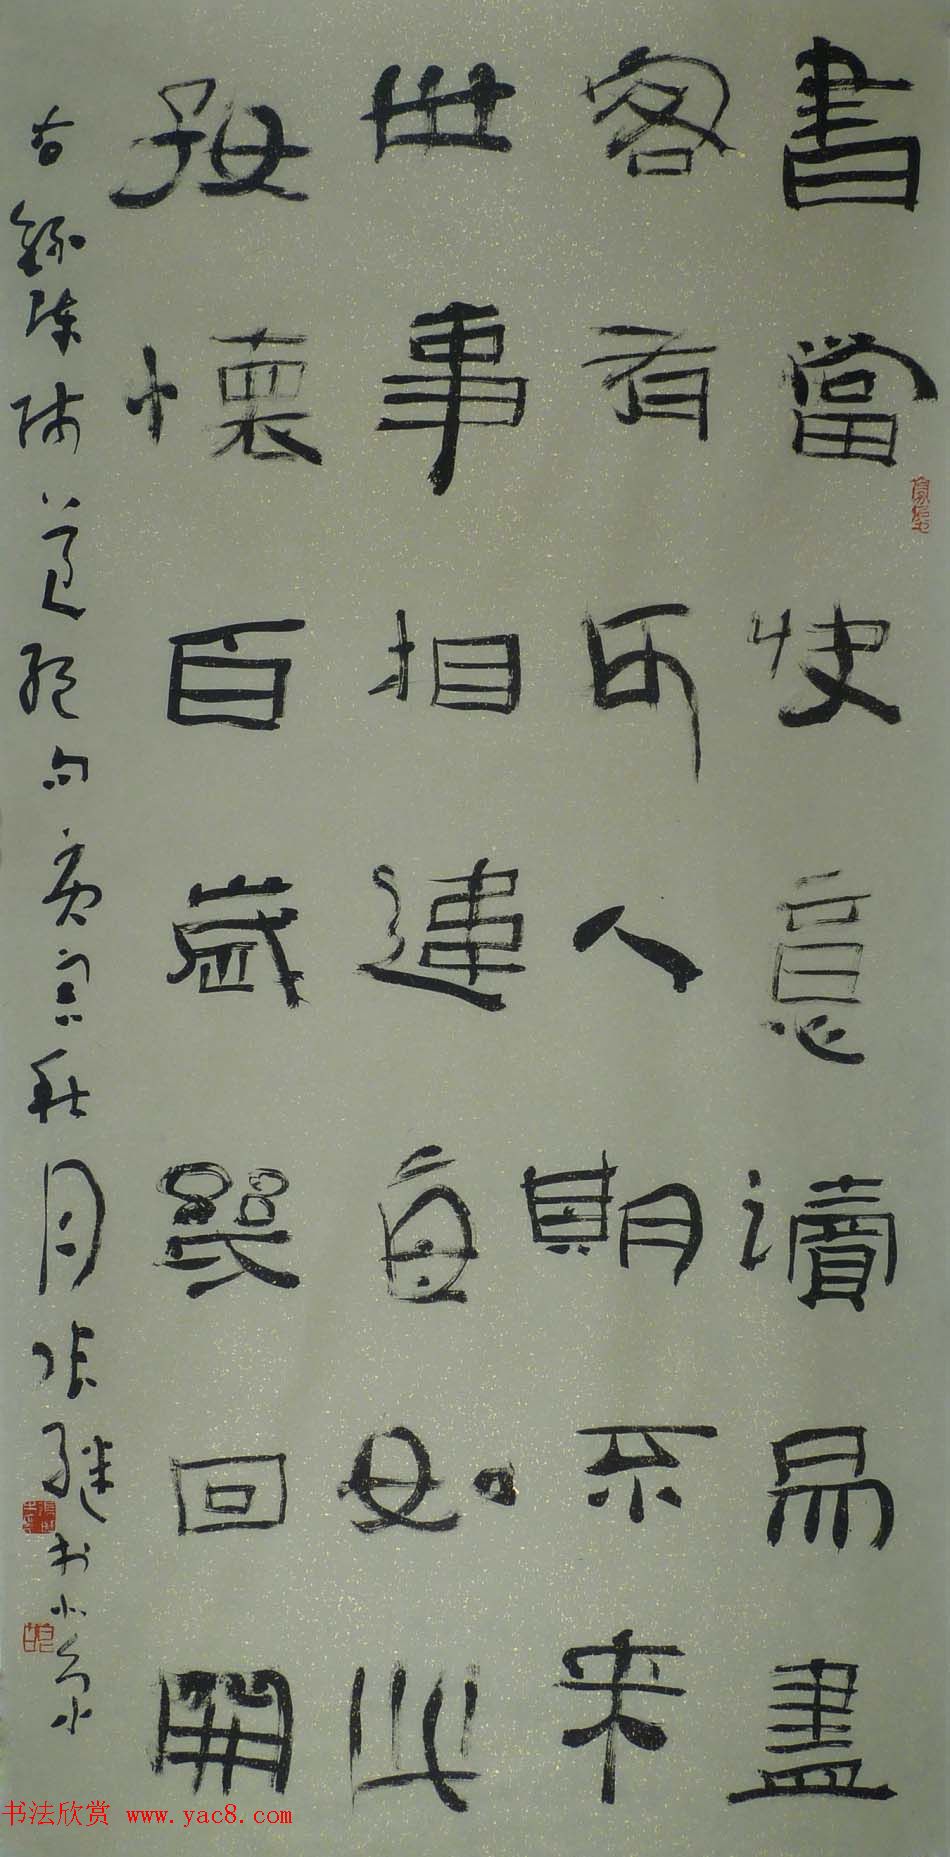 書當快意讀易盡
客有可人期不来
世事相違每如此
好懷百歲幾回開
右錄陳師道絕句庚寅秋月張继书
书法欣赏 www.yac8.com